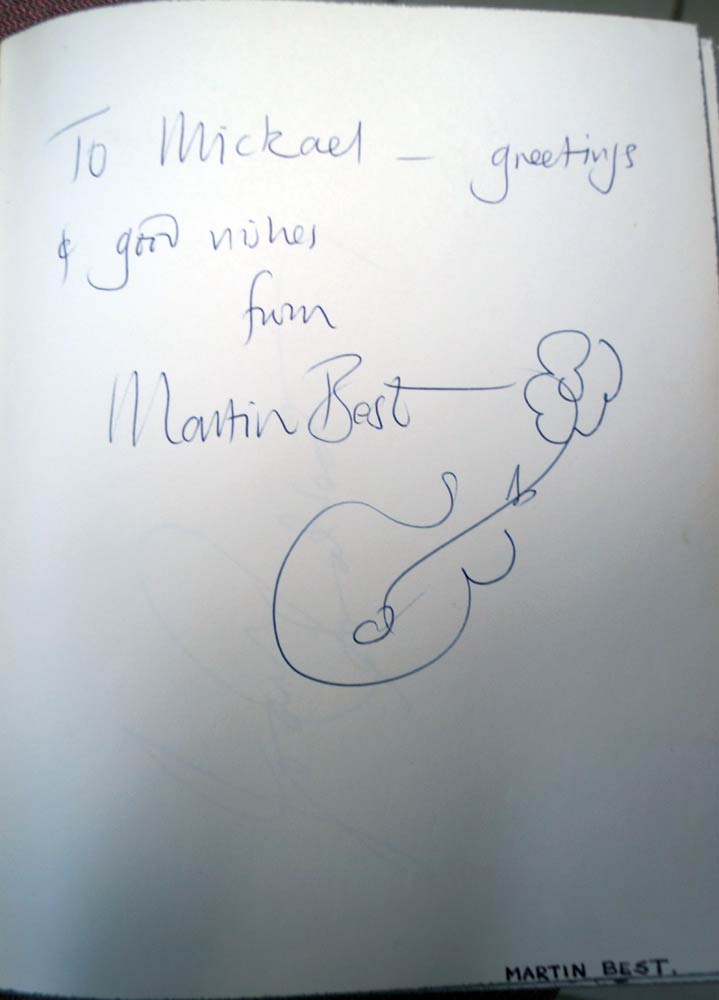 To Mickael — greetings
& good wishes
from
Martin Best
MARTIN BEST.